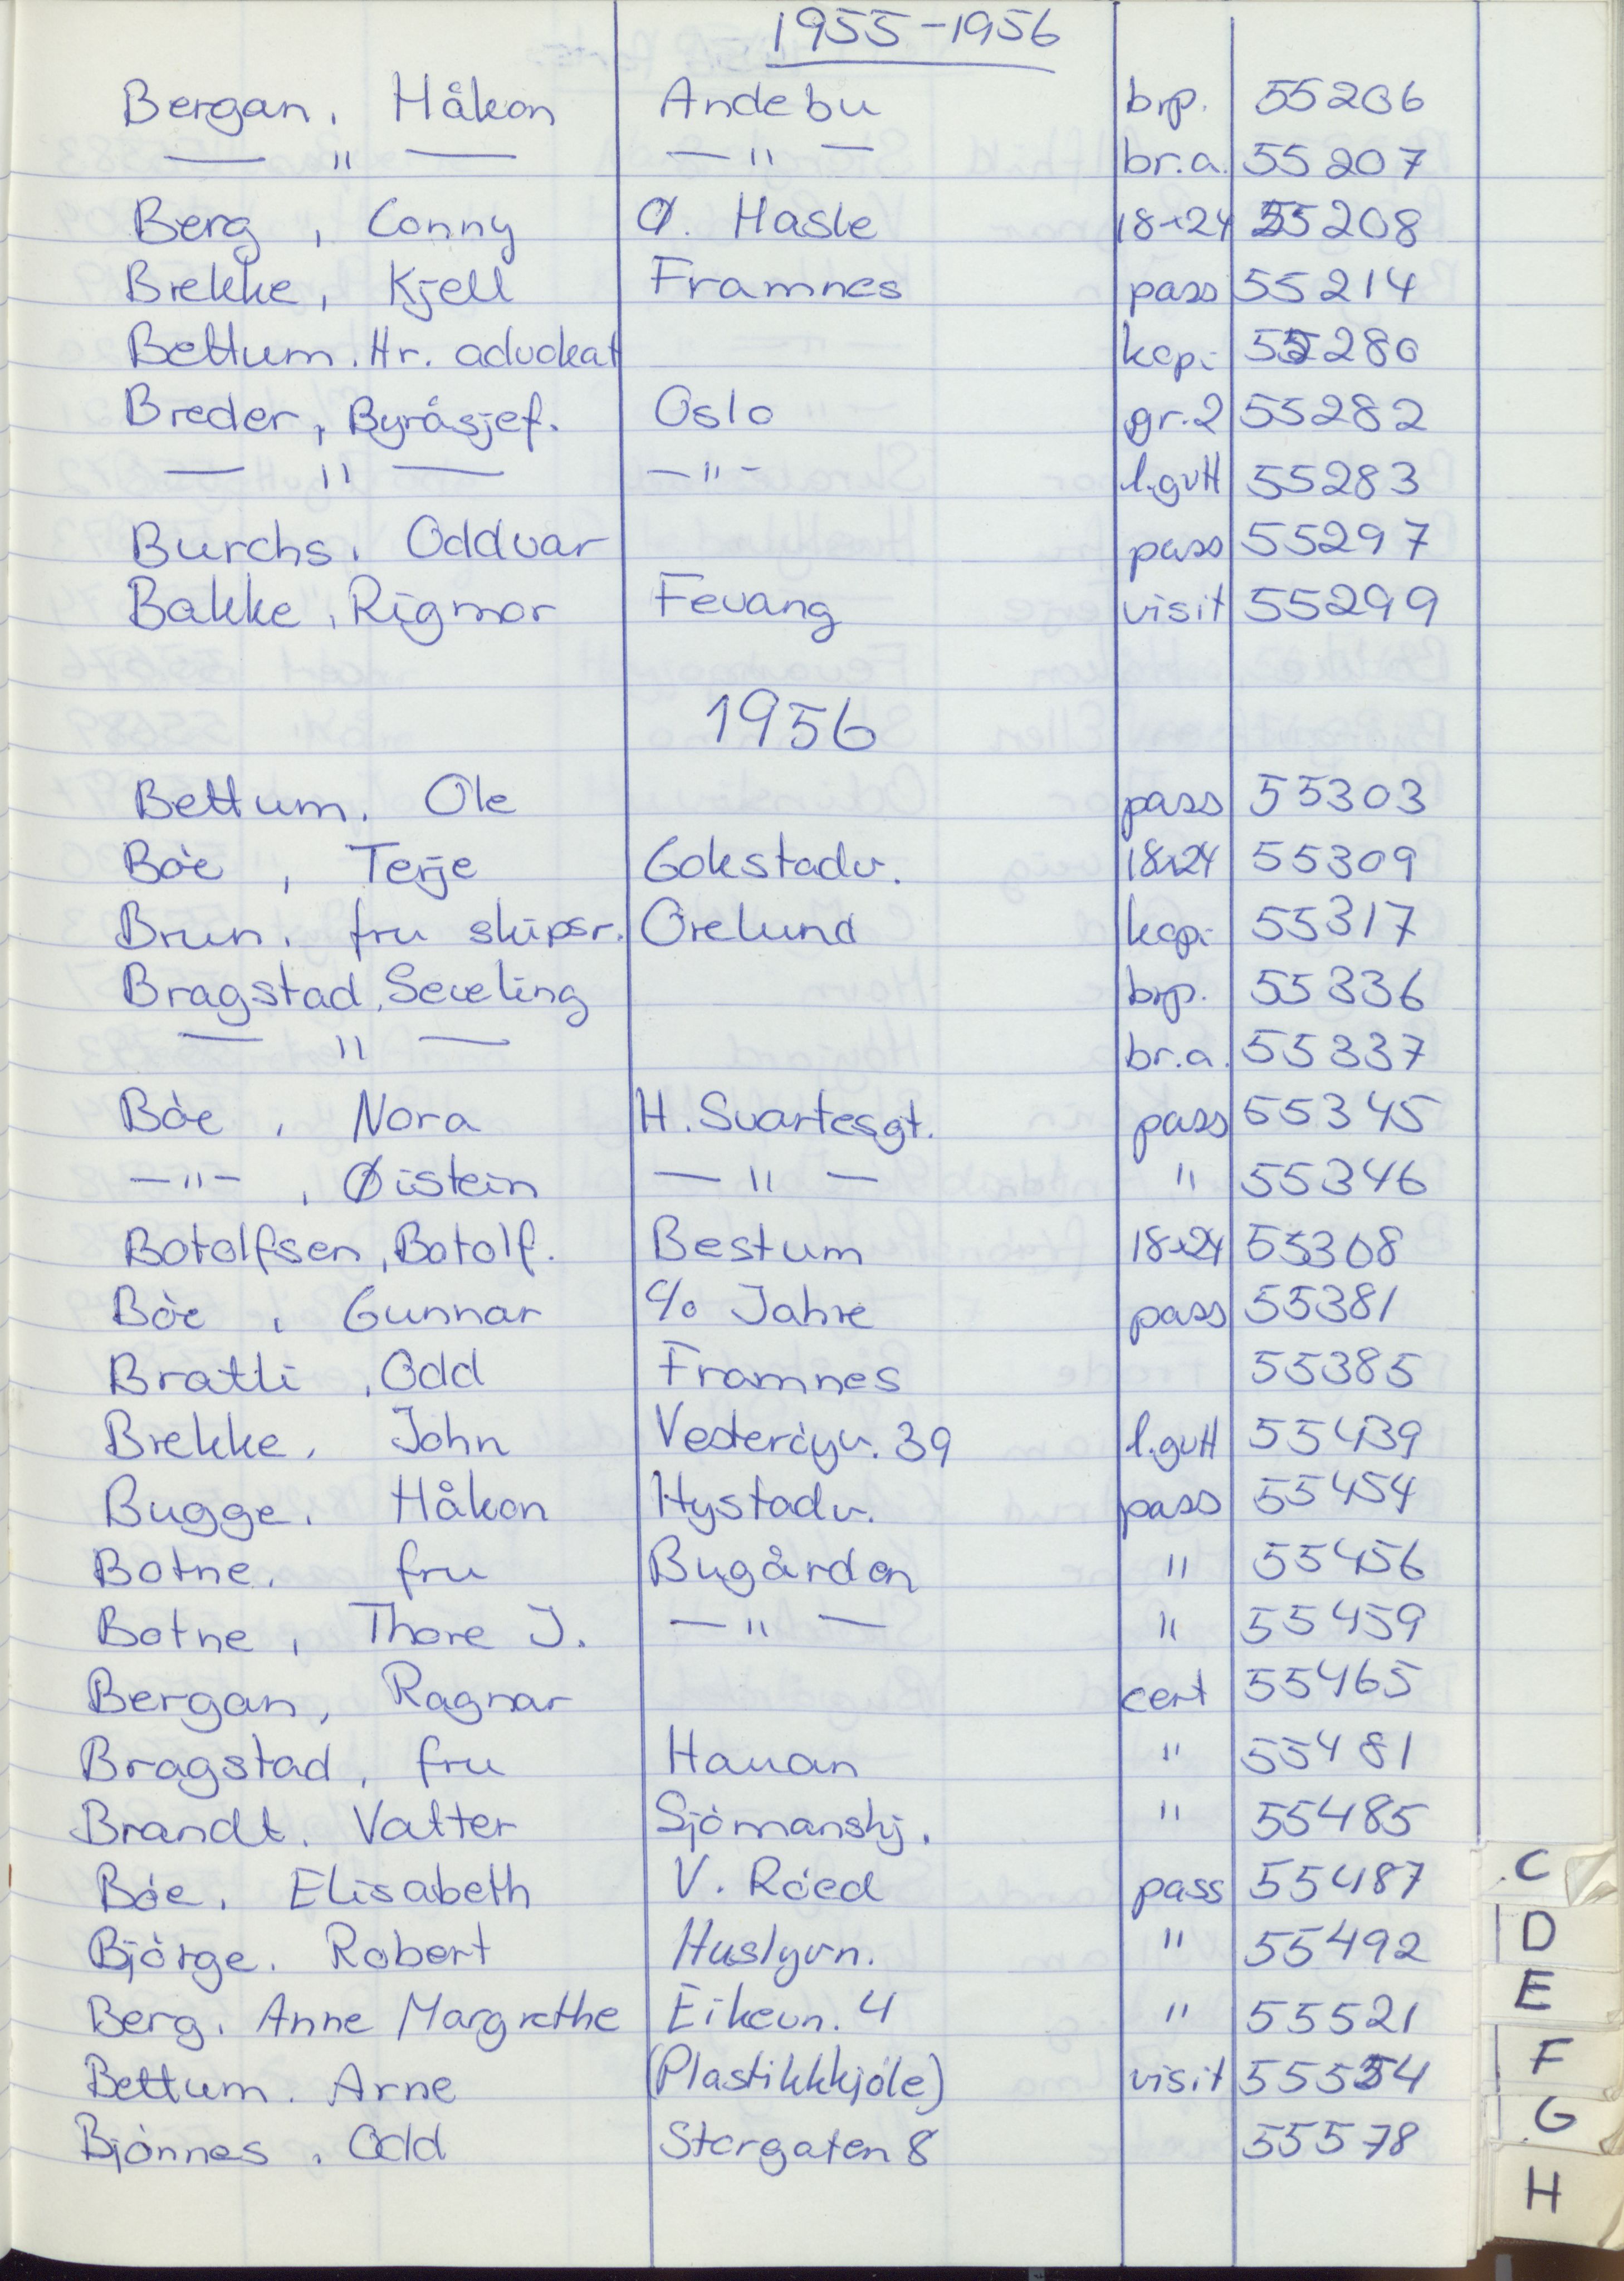 1955-1956
Bergan, Håkon Andebu brp. 55206
— " — — " — br.a. 55207
Berg, Conny Ø. Hasle 18x24 55208
Brekke, Kjell Framnes pass 55214
Bettum. Hr. advokat kopi 55280
Breder, Byråsjef. Oslo gr.2 55282
— " — — " — l.gvtt 55283
Burchs, Oddvar pass 55297
Bakke, Rigmor Fevang visit 55299
1956
Bettum. Ole pass 55303
Bòe, Terje Gokstadv. 18x24 55309
Brun. fru skipsr. Orelund kopi 55317
Bragstad, Seveling brp. 55336
— " — br.a. 55337
Bòe, Nora H. Svartesgt. pass 55345
— " —, Øistein — " — " 55346
Botolfsen, Botolf. Bestum 18x24 55308
Bòe, Gunnar c/o Jahre pass 55381
Bratli, Odd Framnes 55385
Brekke, John Vesteròyv. 39 l.gvtt 55439
Bugge. Håkon Hystadv. pass 55454
Botne. fru Bugården " 55456
Botne, Thore J. — " — " 55459
Bergan, Ragnar cert 55465
Bragstad, fru Hauan " 55481
Brandt. Valter Sjòmanskj. " 55485
Bòe. Elisabeth V. Ròed pass 55487
Bjòrge. Robert Huslyvn. " 55492
Berg. Anne Margrethe Eikevn. 4 " 55521
Bettum. Arne (Plastikkkjòle) visit 55554
Bjònnes, Odd Storgaten 8 55578
C
D
E
F
G
H